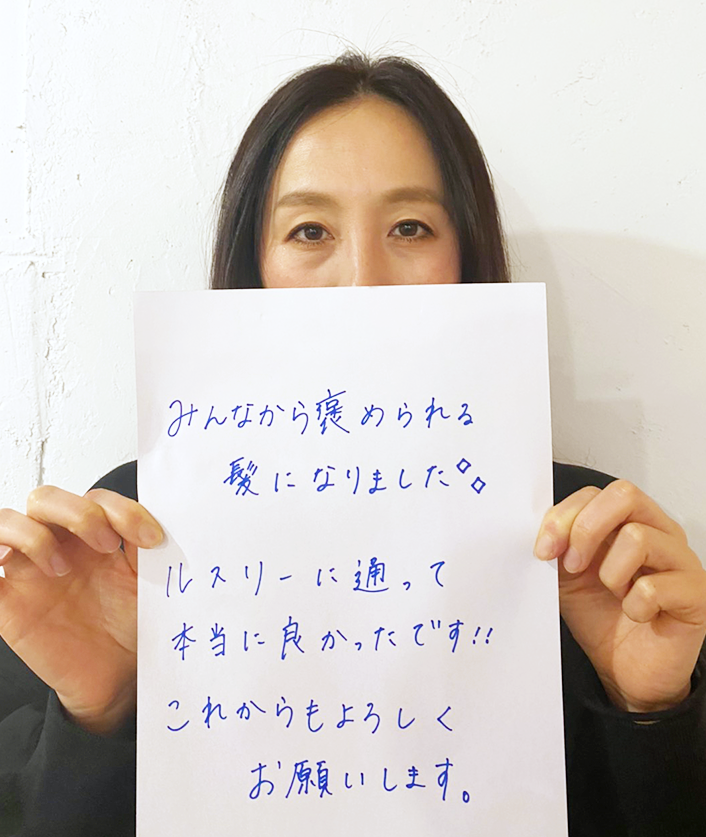 みんなから褒められる
髪になりました
ルスリーに通って
本当に良かったです!!
これからもよろしく
お願いします。